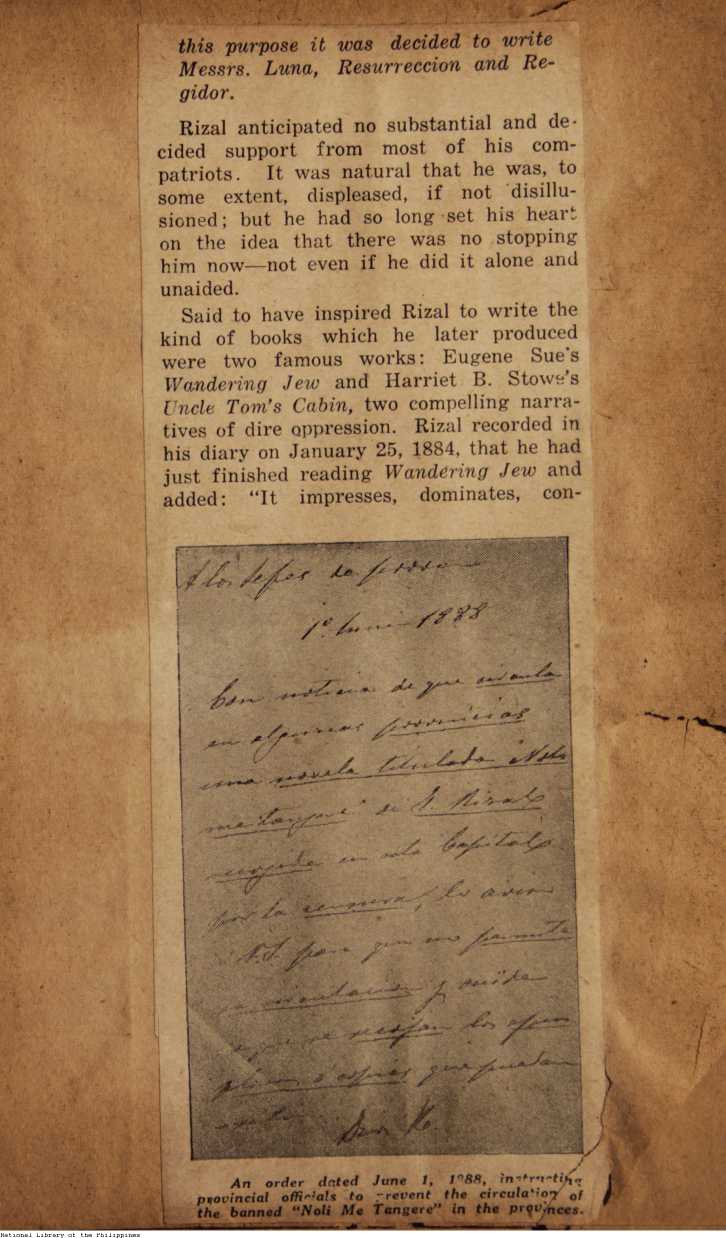 this purpose it was decided to write
Messrs. Luna, Resurreccion and Re-
gidor.
Rizal anticipated no substantial and de-
cided support from most of his com-
patriots. It was natural that he was, to
some extent, displeased, if not disillu-
sioned; but he had so long set his heart
on the idea that there was no stopping
him now—not even if he did it alone and
unaided.
Said to have inspired Rizal to write the
kind of books which he later produced
were two famous works: Eugene Sue's
Wandering Jew and Harriet B. Stowe's
Uncle Tom's Cabin, two compelling narra-
tives of dire oppression. Rizal recorded in
his diary on January 25, 1884, that he had
just finished reading Wandering Jew and
added: "It impresses, dominates, con-
A los Jefes de
1º Junio 1888
Con noticia de que circula
en algunas provincias
una novela titulada "Noli
me tangere" de J. Rizal
recogida en esta Capital
por la censura, lo aviso
para que no permita
su circulacion y cuide
que se recojan los ejem
plares que puedan
An order dated June 1, 1888, instructing
provincial officials to prevent the circulation of
the banned "Noli Me Tangere" in the provinces.
National Library of the Philippines